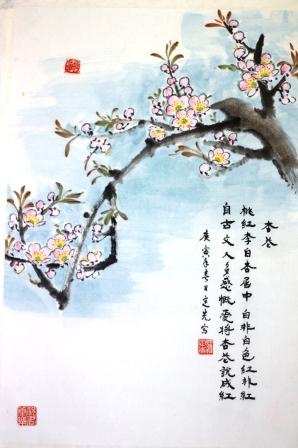 杏花
桃红李白杏居中 白非白色红非红
自古文人多感慨 爱将杏花说成红
庚寅年春日定先写